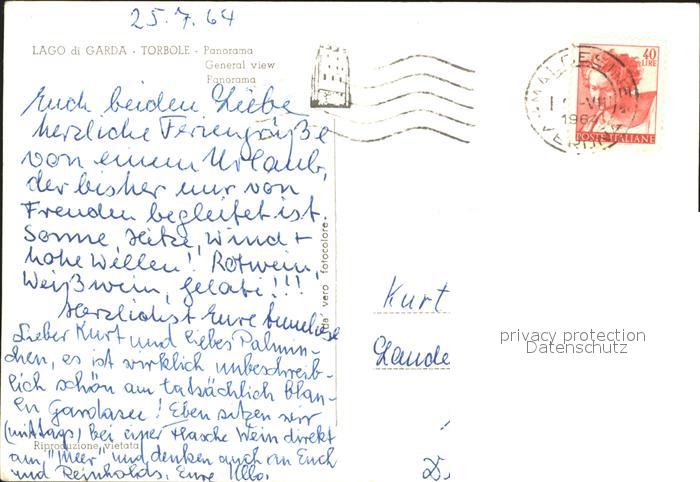 25.7.64
LAGO di GARDA - TORBOLE - Panorama
General view
Panorama
40
LIRE
POSTE ITALIANE
Euch beiden Liebe
herzliche Feriengrüße
von einem Urlaub,
der bisher nur von
Freuden begleitet ist.
Sonne, Hitze, Wind +
hohe Wellen!! Rotwein,
Weißwein, gelati!!!
Herzlichst Eure Anneliese
Lieber Kurt und liebes Palmin-
chen, es ist wirklich unbeschreib-
lich schön am tatsächlich blau-
en Gardasee! Eben sitzen wir
(mittags) bei einer Flasche Wein direkt
am "Meer" und denken auch an Euch
und Reinholds. Eure Ulla.
Riproduzione vietata
da vero fotocolore
Kurt
Lande
D.
privacy protection
Datenschutz